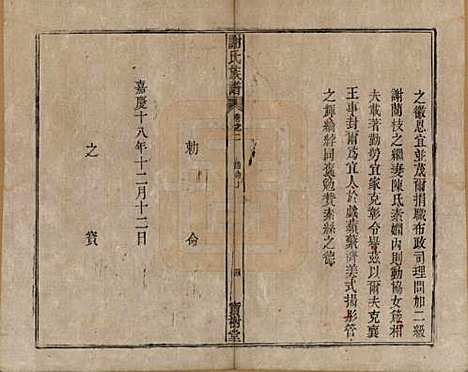 之徽恩宜並茂爾捐職布政司理問加二級
謝蘭枝之繼妻陳氏素嫻內則勤協女箴相
夫載著勤勞宜家克彰令譽茲以爾夫克襄
王事封爾為宜人於戲蘋蘩濟美式揚彤管
之輝綸綍同褒勉贊素絲之德
謝氏族譜
卷之二
四
寶樹堂
勅命
嘉慶十八年十二月十二日
之寶